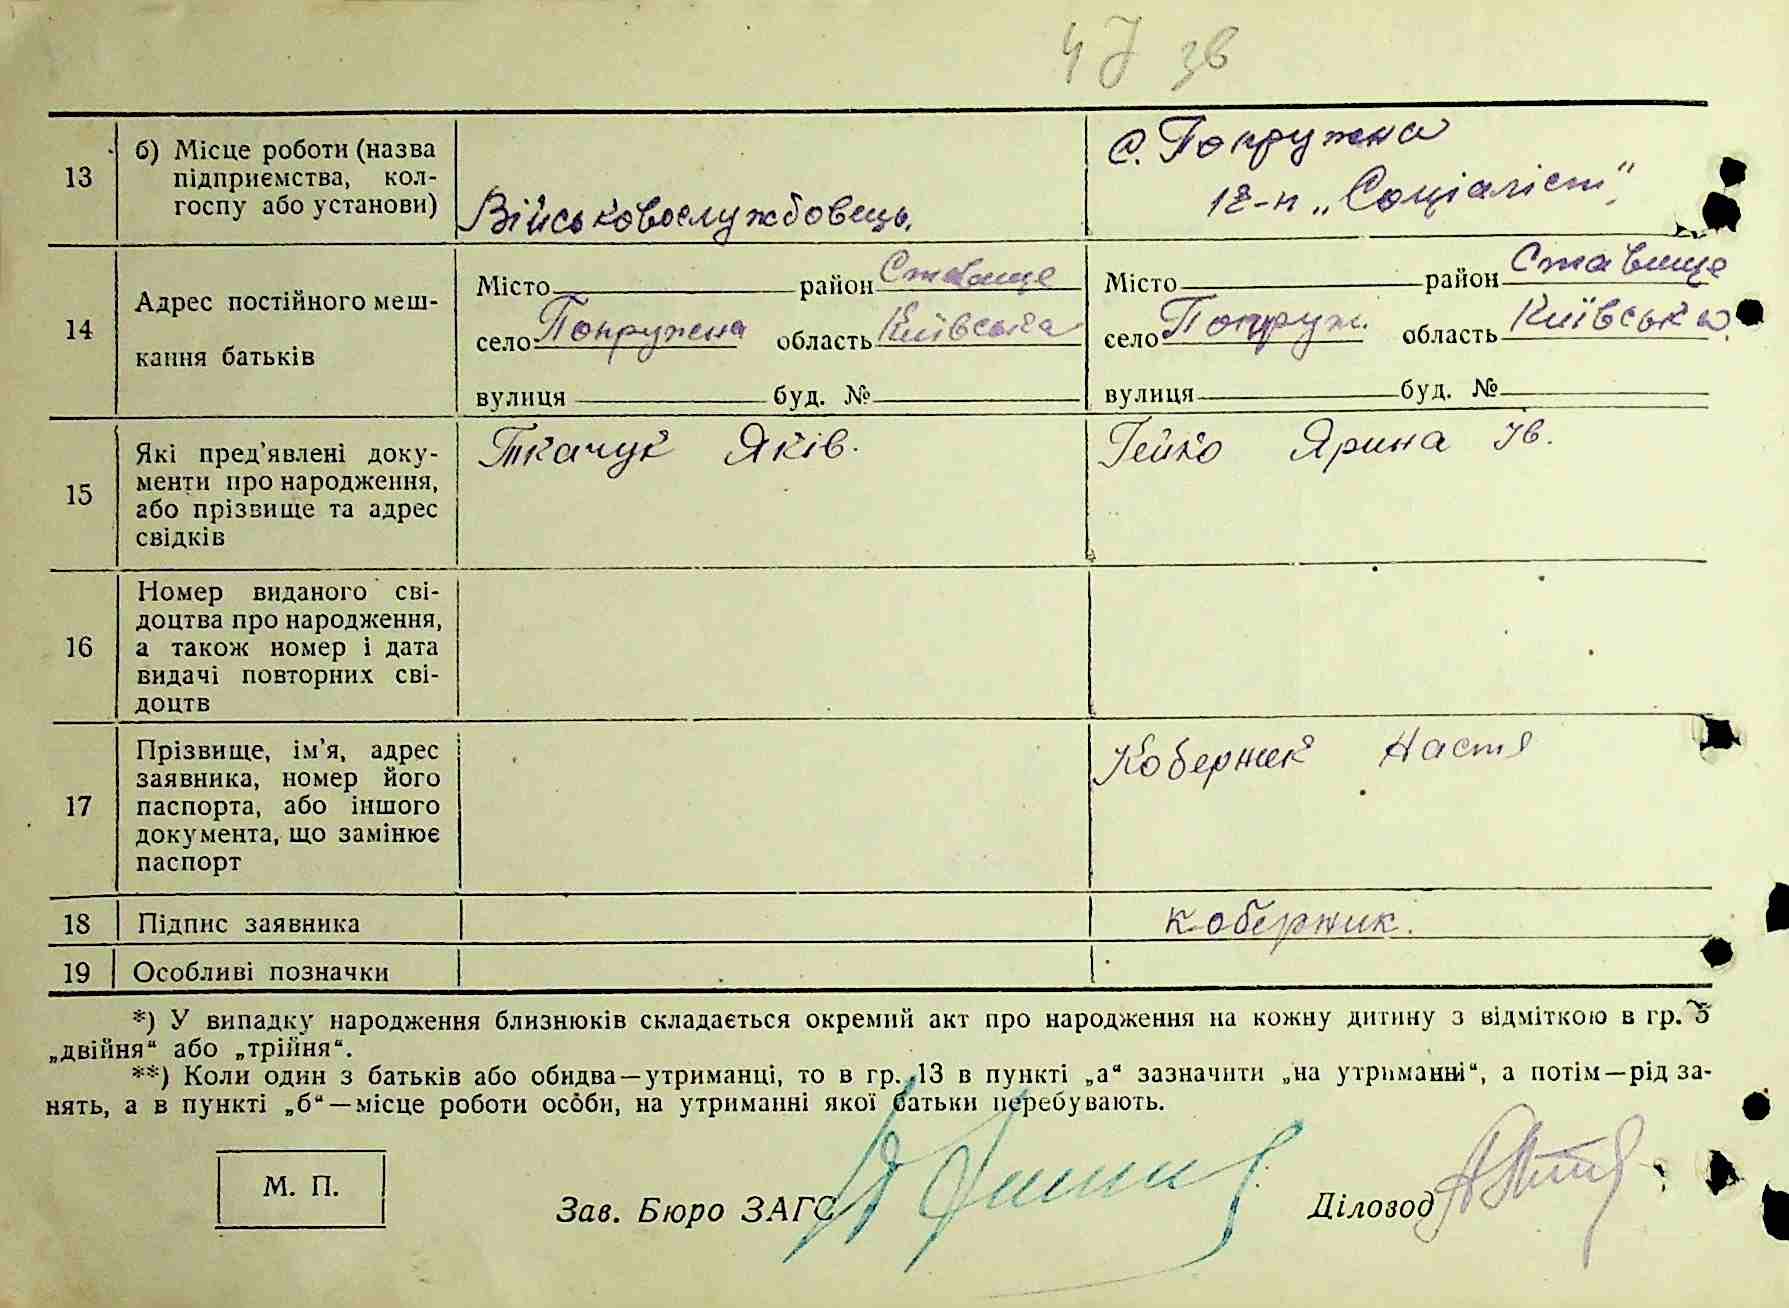 47 зв
13 б) Місце роботи (назва
підприємства, кол-
госпу або установи)
Військовослужбовець.
с. Попружна
к-п „Соціаліст".
14 Адрес постійного меш-
кання батьків
Місто район Ставище
село Попружена область Київська
вулиця буд. №
Місто район Ставище
село Попруж. область Київська
вулиця буд. №
15 Які пред'явлені доку-
менти про народження,
або прізвище та адрес
свідків
Ткачук Яків.
Гейко Ярина Ів.
16 Номер виданого сві-
доцтва про народження,
а також номер і дата
видачі повторних сві-
доцтв
17 Прізвище, ім'я, адрес
заявника, номер його
паспорта, або іншого
документа, що замінює
паспорт
Кобержик Настя
18 Підпис заявника
кобержик.
19 Особливі позначки
*) У випадку народження близнюків складається окремий акт про народження на кожну дитину з відміткою в гр. 3
„двійня“ або „трійня“.
**) Коли один з батьків або обидва—утриманці, то в гр. 13 в пункті „а“ зазначити „на утриманні“, а потім—рід за-
нять, а в пункті „б“—місце роботи особи, на утриманні якої батьки перебувають.
М. П.
Зав. Бюро ЗАГС
Діловод